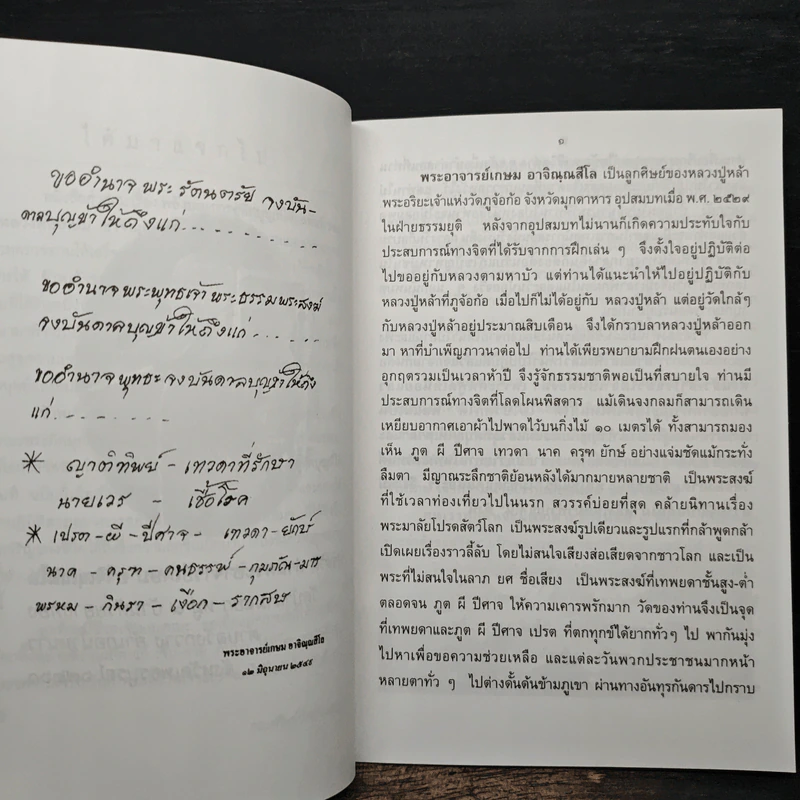 ขออำนาจ พระ รัตนตรัย จงบัน-
ดาลบุญข้าให้ถึงแก่. . . . . . . . . .
ขออำนาจพระพุทธเจ้า พระธรรมพระสงฆ์
จงบันดาลบุญข้าให้ถึงแก่. . . . . .
ขออำนาจพุทธะ จงบันดาลบุญข้าให้ถึง
แก่. . . . . . . .
* ญาติทิพย์ - เทวดาที่รักษา
นายเวร - เชื้อโรค
* เปรต - ผี - ปีศาจ - เทวดา - ยักษ์
นาค - ครุฑ - คนธรรพ์ - กุมภัณ - มาร
พรหม - กินรา - เงือก - รากสษ
พระอาจารย์เกษม อาจิณฺณสีโล
๑๒ มิถุนายน ๒๕๔๙
๑
พระอาจารย์เกษม อาจิณฺณสีโล เป็นลูกศิษย์ของหลวงปู่หล้า
พระอริยะเจ้าแห่งวัดภูจ้อก้อ จังหวัดมุกดาหาร อุปสมบทเมื่อ พ.ศ. ๒๕๒๙
ในฝ่ายธรรมยุติ หลังจากอุปสมบทไม่นานก็เกิดความประทับใจกับ
ประสบการณ์ทางจิตที่ได้รับจากการฝึกเล่น ๆ จึงตั้งใจอยู่ปฏิบัติต่อ
ไปขออยู่กับหลวงตามหาบัว แต่ท่านได้แนะนำให้ไปอยู่ปฏิบัติกับ
หลวงปู่หล้าที่ภูจ้อก้อ เมื่อไปก็ไม่ได้อยู่กับ หลวงปู่หล้า แต่อยู่วัดใกล้ๆ
กับหลวงปู่หล้าอยู่ประมาณสิบเดือน จึงได้กราบลาหลวงปู่หล้าออก
มา หาที่บำเพ็ญภาวนาต่อไป ท่านได้เพียรพยายามฝึกฝนตนเองอย่าง
อุกฤตรวมเป็นเวลาห้าปี จึงรู้จักธรรมชาติพอเป็นที่สบายใจ ท่านมี
ประสบการณ์ทางจิตที่โลดโผนพิสดาร แม้เดินจงกลมก็สามารถเดิน
เหยียบอากาศเอาผ้าไปพาดไว้บนกิ่งไม้ ๑๐ เมตรได้ ทั้งสามารถมอง
เห็น ภูต ผี ปีศาจ เทวดา นาค ครุฑ ยักษ์ อย่างแจ่มชัดแม้กระทั่ง
ลืมตา มีญาณระลึกชาติย้อนหลังได้มากมายหลายชาติ เป็นพระสงฆ์
ที่ใช้เวลาท่องเที่ยวไปในนรก สวรรค์บ่อยที่สุด คล้ายนิทานเรื่อง
พระมาลัยโปรดสัตว์โลก เป็นพระสงฆ์รูปเดียวและรูปแรกที่กล้าพูดกล้า
เปิดเผยเรื่องราวลี้ลับ โดยไม่สนใจเสียงส่อเสียดจากชาวโลก และเป็น
พระที่ไม่สนใจในลาภ ยศ ชื่อเสียง เป็นพระสงฆ์ที่เทพยดาชั้นสูง-ต่ำ
ตลอดจน ภูต ผี ปีศาจ ให้ความเคารพรักมาก วัดของท่านจึงเป็นจุด
ที่เทพยดาและภูต ผี ปีศาจ เปรต ที่ตกทุกข์ได้ยากทั่วๆ ไป พากันมุ่ง
ไปหาเพื่อขอความช่วยเหลือ และแต่ละวันพวกประชาชนมากหน้า
หลายตาทั่ว ๆ ไปต่างดั้นด้นข้ามภูเขา ผ่านทางอันทุรกันดารไปกราบ